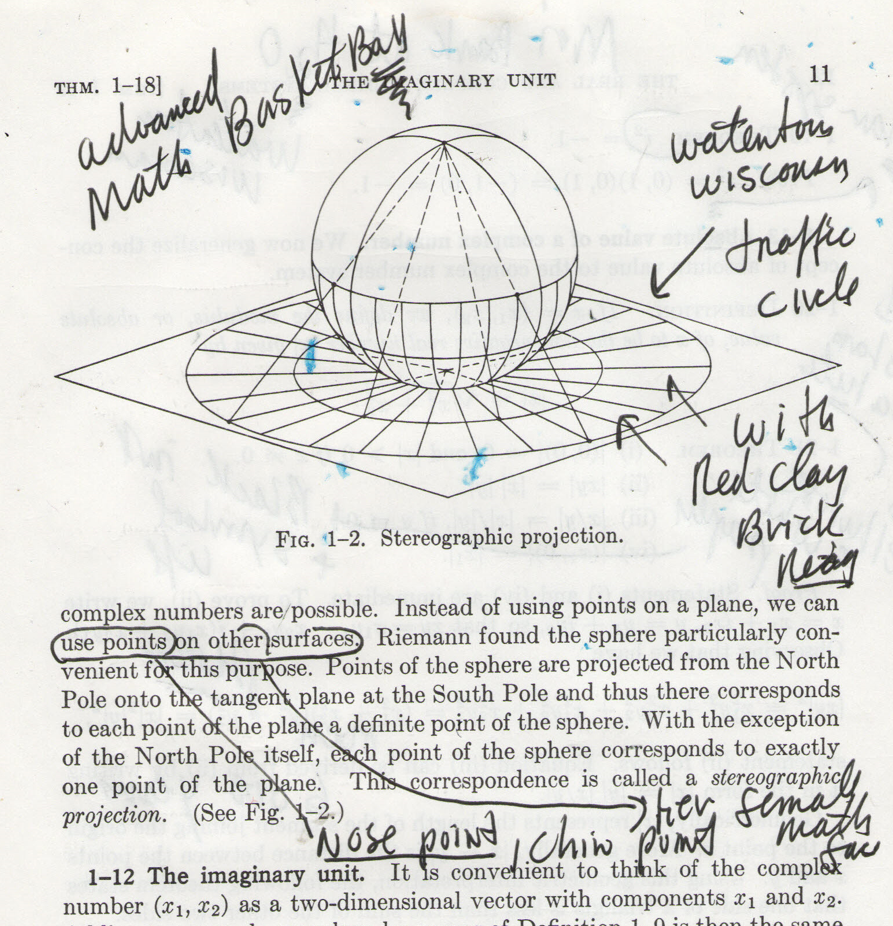 THM. 1–18] THE IMAGINARY UNIT 11
advanced
Math BasketBall
watentous
wisconsin
traffic
circle
with
Red Clay
Brick
Fig. 1–2. Stereographic projection.
complex numbers are possible. Instead of using points on a plane, we can
use points on other surfaces. Riemann found the sphere particularly con-
venient for this purpose. Points of the sphere are projected from the North
Pole onto the tangent plane at the South Pole and thus there corresponds
to each point of the plane a definite point of the sphere. With the exception
of the North Pole itself, each point of the sphere corresponds to exactly
one point of the plane. This correspondence is called a stereographic
projection. (See Fig. 1–2.)
Her female
math
Nose point / Chin point
1–12 The imaginary unit. It is convenient to think of the complex
number (x₁, x₂) as a two-dimensional vector with components x₁ and x₂.